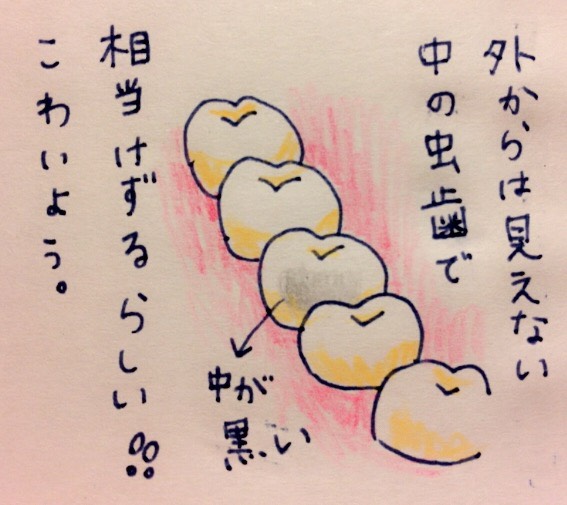 外からは見えない
中の虫歯で
中が
黒い
相当けずるらしい!!
こわいよう。